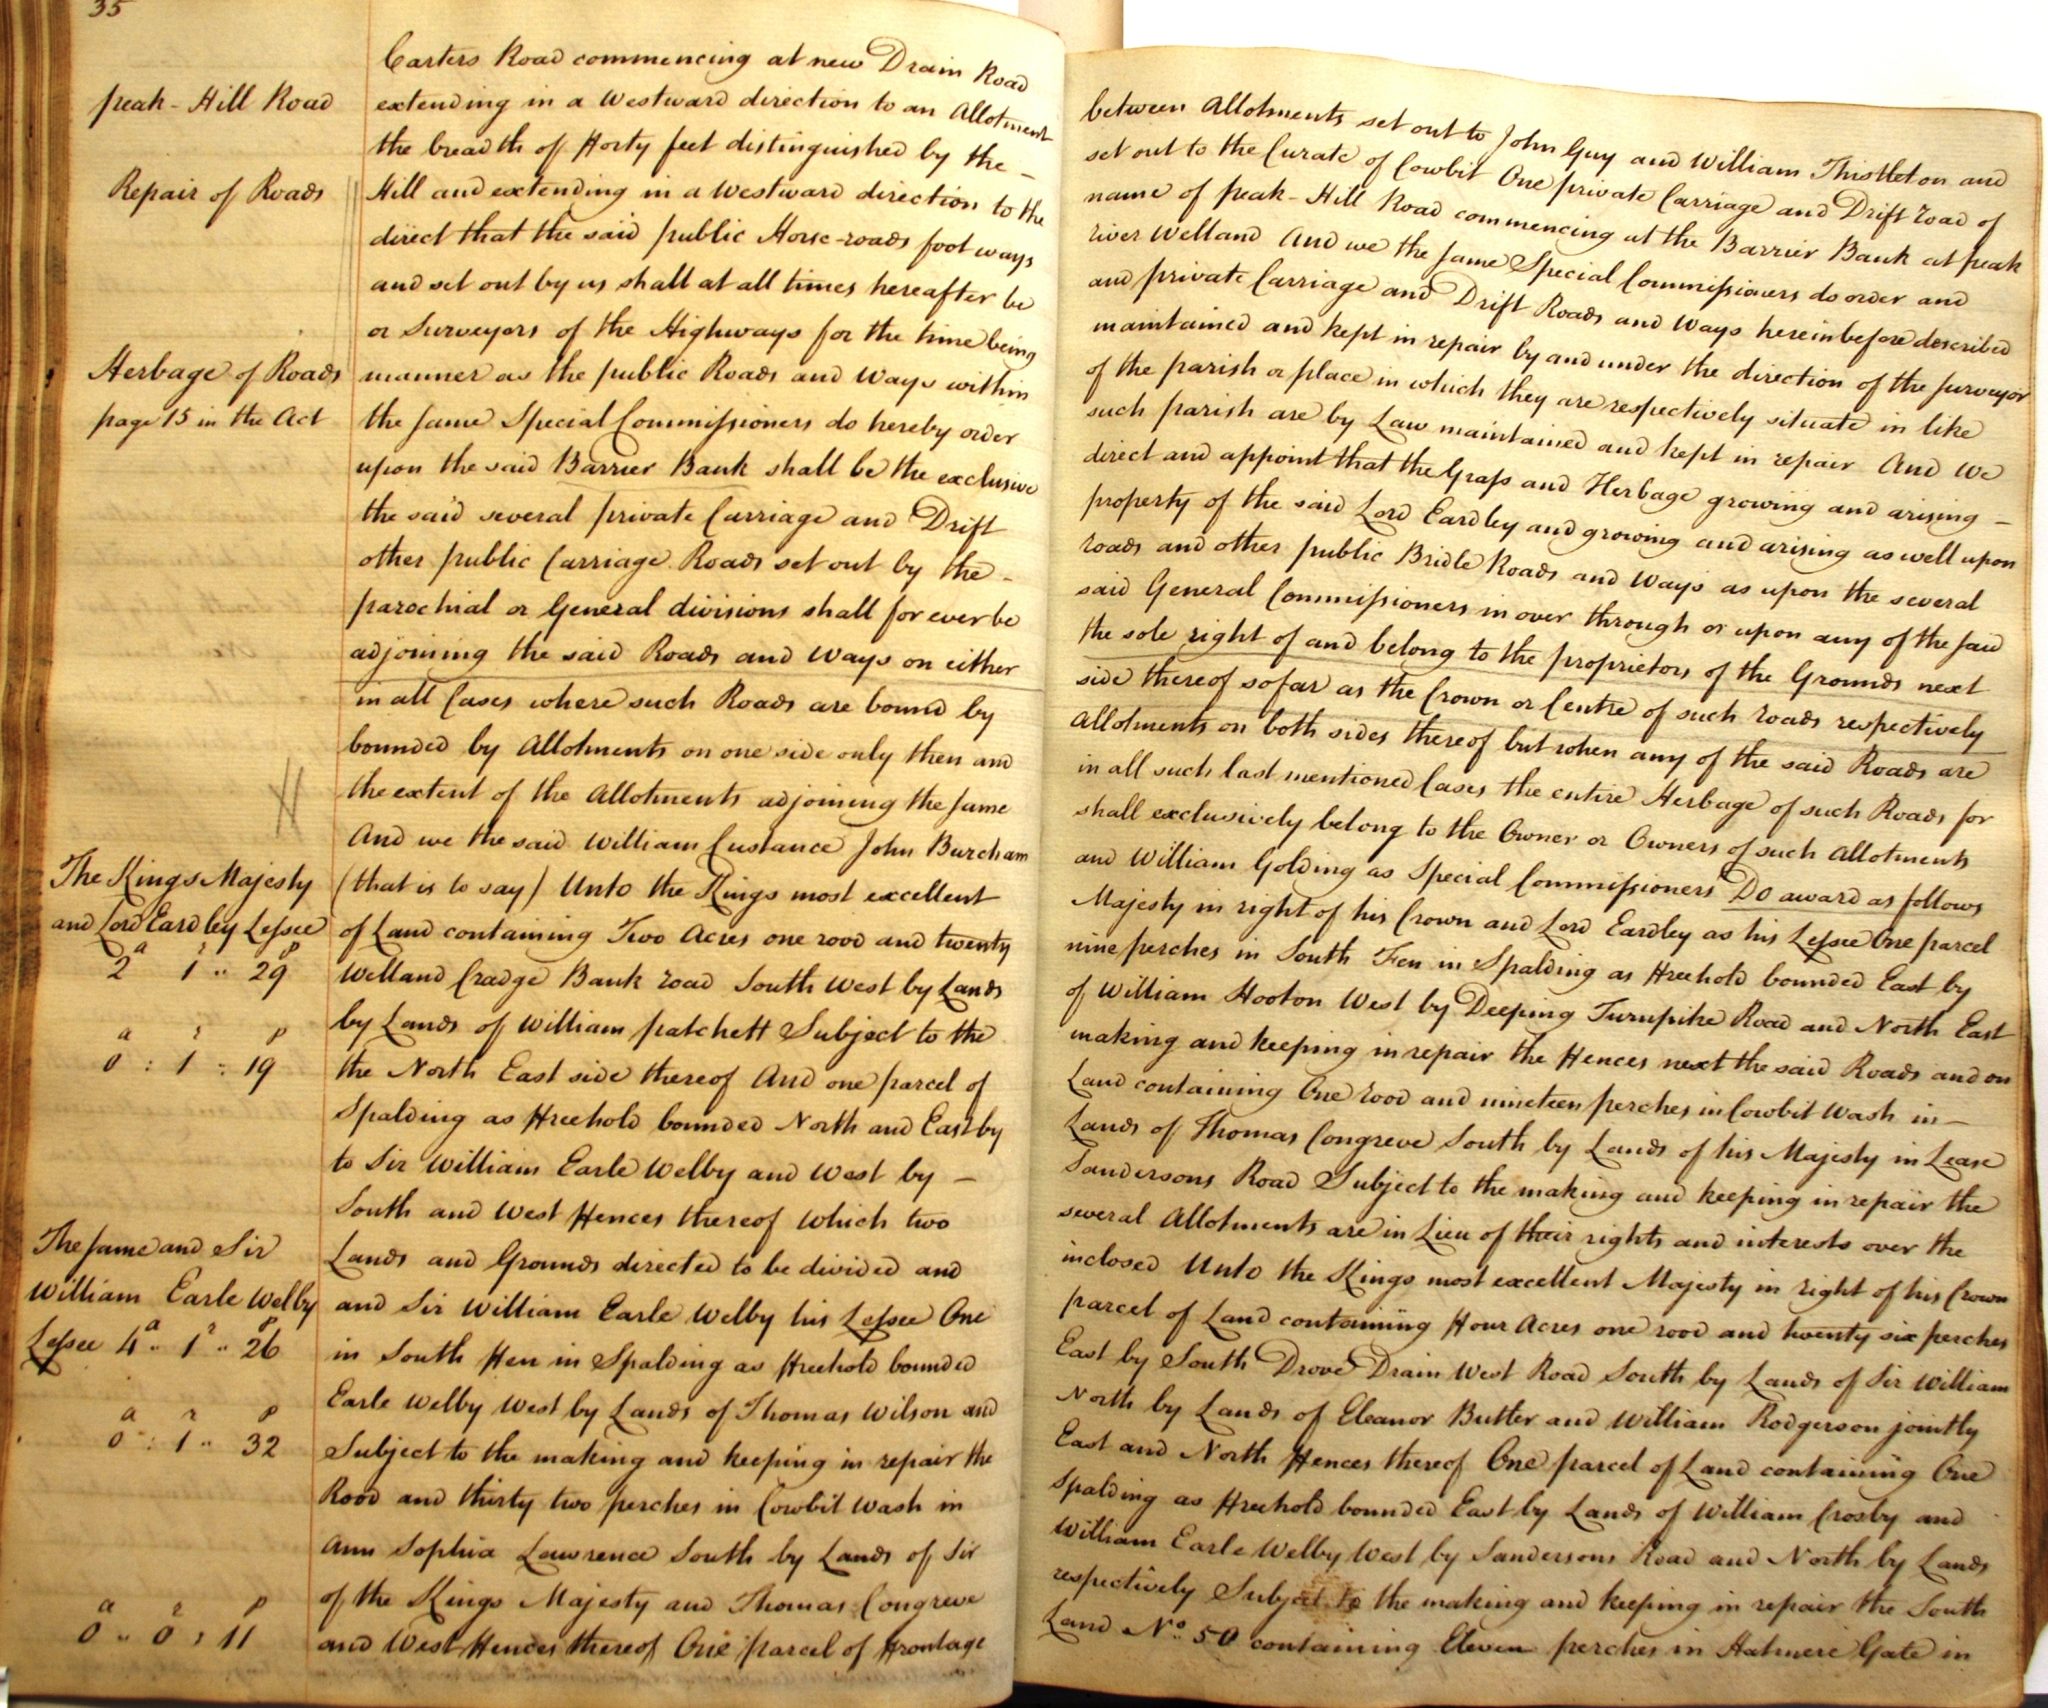 35
Carters Road commencing at new Drain Road between Allotments set out to John Guy and William Thistleton and
peak - Hill Road
extending in a Westward direction to an Allotment set out to the Curate of Cowbit One private Carriage and Drift road of
the breadth of Forty feet distinguished by the - name of peak - Hill Road commencing at the Barrier Bank at peak
Repair of Roads
Hill and extending in a Westward direction to the river Welland And we the same Special Commissioners do order and
direct that the said public Horse-roads foot ways and private Carriage and Drift Roads and Ways hereinbefore described
and set out by us shall at all times hereafter be maintained and kept in repair by and under the direction of the surveyor
or Surveyors of the Highways for the time being of the parish or place in which they are respectively situate in like
Herbage of Roads
manner as the public Roads and Ways within such parish are by Law maintained and kept in repair And we
page 15 in the Act
the same Special Commissioners do hereby order direct and appoint that the Grass and Herbage growing and arising -
upon the said Barrier Bank shall be the exclusive property of the said Lord Eardley and growing and arising as well upon
the said several private Carriage and Drift roads and other public Bridle Roads and Ways as upon the several
other public Carriage Roads set out by the - said General Commissioners in over through or upon any of the said
parochial or General divisions shall for ever be the sole right of and belong to the proprietors of the Grounds next
adjoining the said Roads and Ways on either side thereof so far as the Crown or Centre of such roads respectively
in all Cases where such Roads are bound by Allotments on both sides thereof but when any of the said Roads are
bounded by Allotments on one side only then and in all such last mentioned Cases the entire Herbage of such Roads for
the extent of the Allotments adjoining the same shall exclusively belong to the Owner or Owners of such Allotments
And we the said William Custance John Burcham and William Golding as Special Commissioners Do award as follows
The Kings Majesty
(that is to say) Unto the Kings most excellent Majesty in right of his Crown and Lord Eardley as his Lessee One parcel
and Lord Eardley Lessee
of Land containing Two Acres one rood and twenty nine perches in South Fen in Spalding as Freehold bounded East by
a r p
2 1 .. 29
Welland Cradge Bank road South West by Lands of William Hooton West by Deeping Turnpike Road and North East
by Lands of William patchett Subject to the making and keeping in repair the Fences next the said Roads and on
a r p
0 : 1 : 19
the North East side thereof And one parcel of Land containing One rood and nineteen perches in Cowbit Wash in -
Spalding as Freehold bounded North and East by Lands of Thomas Congreve South by Lands of his Majesty in Lease
to Sir William Earle Welby and West by - Sandersons Road Subject to the making and keeping in repair the
South and West Fences thereof Which two several Allotments are in Lieu of their rights and interests over the
The same and Sir
Lands and Grounds directed to be divided and inclosed Unto the Kings most excellent Majesty in right of his Crown
William Earle Welby
and Sir William Earle Welby his Lessee One parcel of Land containing Four Acres one rood and twenty six perches
a r p
Lessee 4 .. 1 .. 26
in South Fen in Spalding as Freehold bounded East by South Drove Drain West Road South by Lands of Sir William
Earle Welby West by Lands of Thomas Wilson and North by Lands of Eleanor Butter and William Rodgerson jointly
a r p
0 : 1 .. 32
Subject to the making and keeping in repair the East and North Fences thereof One parcel of Land containing One
Rood and thirty two perches in Cowbit Wash in Spalding as Freehold bounded East by Lands of William Crosby and
Ann Sophia Lawrence South by Lands of Sir William Earle Welby West by Sandersons Road and North by Lands
of the Kings Majesty and Thomas Congreve respectively Subject to the making and keeping in repair the South
a r p
0 .. 0 : 11
and West Fences thereof One parcel of Frontage Land No. 50 containing Eleven perches in Halmere Gate in